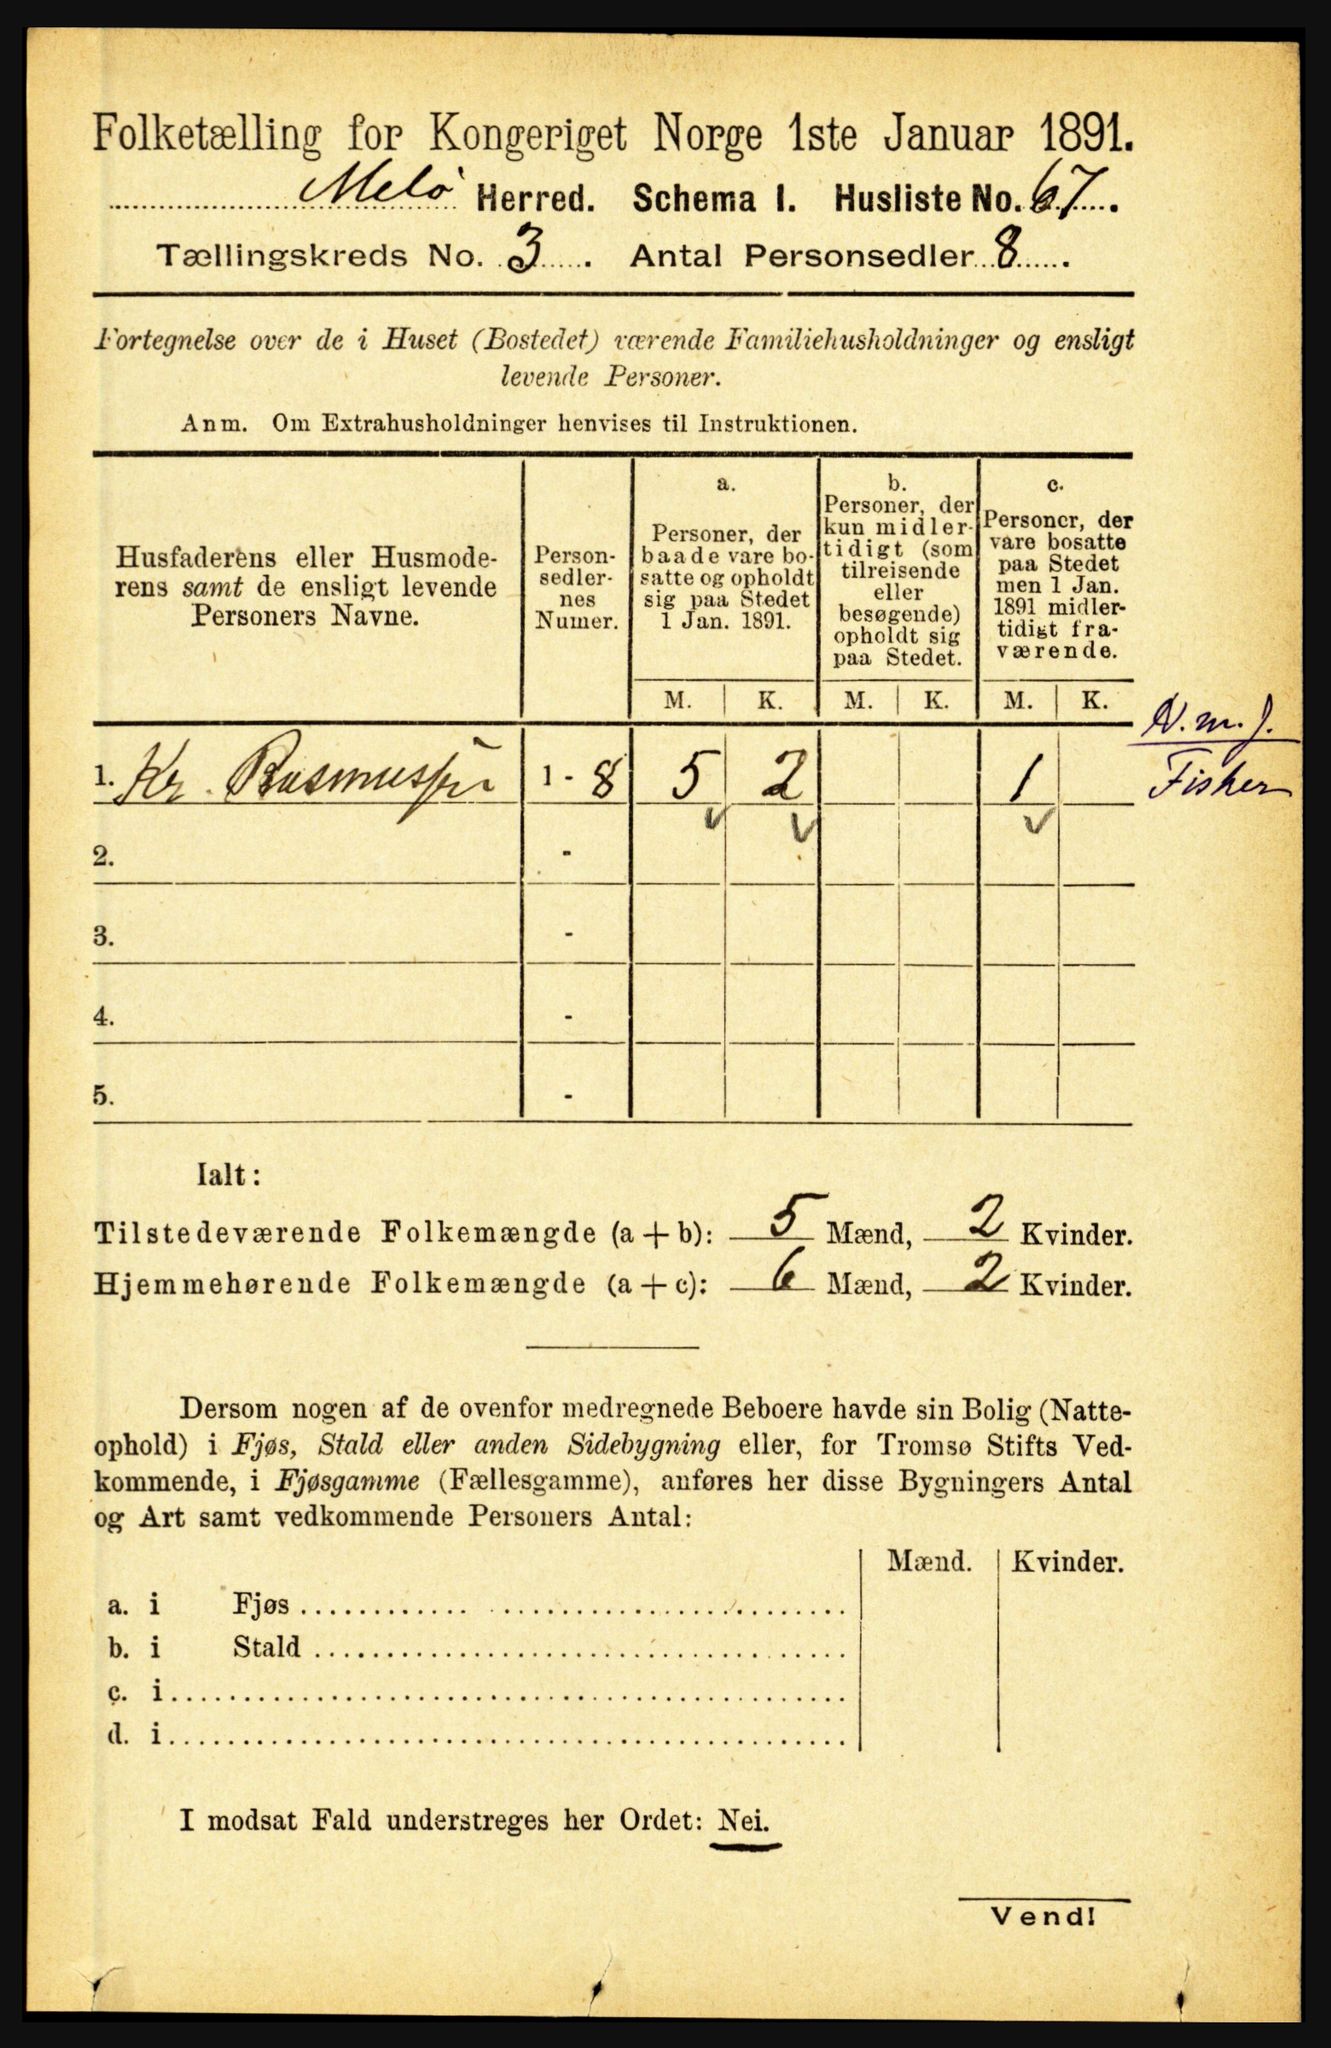 Folketælling for Kongeriget Norge 1ste Januar 1891.
Melö Herred. Schema I. Husliste No. 67.
Tællingskreds No. 3. Antal Personsedler 8.
Fortegnelse over de i Huset (Bostedet) værende Familiehusholdninger og ensligt
levende Personer.
Anm. Om Extrahusholdninger henvises til Instruktionen.
Husfaderens eller Husmode-
rens samt de ensligt levende
Personers Navne.
Person-
sedler-
nes
Numer.
a.
Personer, der
baade vare bo-
satte og opholdt
sig paa Stedet
1 Jan. 1891.
b.
Personer, der
kun midler-
tidigt (som
tilreisende
eller
besøgende)
opholdt sig
paa Stedet.
c.
Personer, der
vare bosatte
paa Stedet
men 1 Jan.
1891 midler-
tidigt fra-
værende.
M. K. M. K. M. K.
N. m. f.
1. Kr. Rasmussen 1 - 8 5 2 1 Fisker
2. -
3. -
4. -
5. -
Ialt:
Tilstedeværende Folkemængde (a + b): 5 Mænd, 2 Kvinder.
Hjemmehørende Folkemængde (a + c): 6 Mænd, 2 Kvinder.
Dersom nogen af de ovenfor medregnede Beboere havde sin Bolig (Natte-
ophold) i Fjøs, Stald eller anden Sidebygning eller, for Tromsø Stifts Ved-
kommende, i Fjøsgamme (Fællesgamme), anføres her disse Bygningers Antal
og Art samt vedkommende Personers Antal:
Mænd. Kvinder.
a. i Fjøs
b. i Stald
c. i
d. i
I modsat Fald understreges her Ordet: Nei.
Vend!